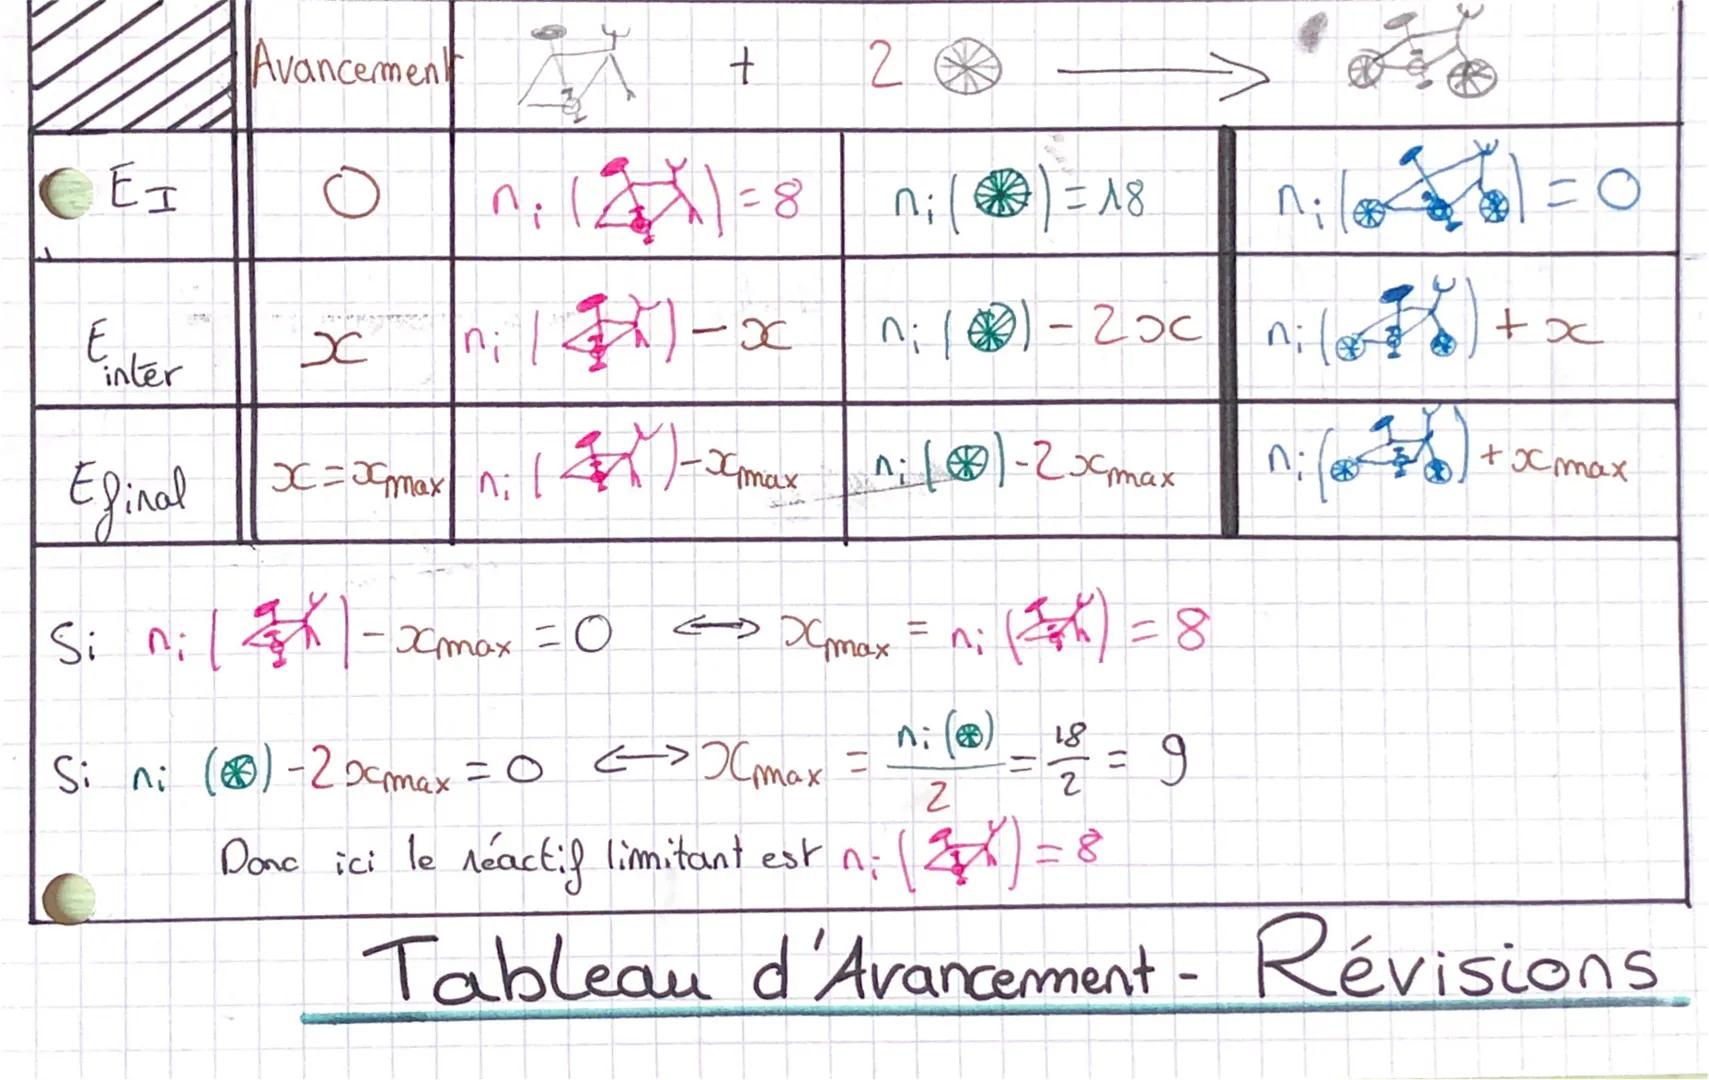 Avancement + 2 →
E I 0 ni ( ) = 8 ni ( ) = 18 ni ( ) = 0
E inter x ni ( ) - x ni ( ) - 2x ni ( ) + x
E final x = xmax ni ( ) - xmax ni ( ) - 2xmax ni ( ) + xmax
Si ni ( ) - xmax = 0 ↔ xmax = ni ( ) = 8
Si ni ( ) - 2xmax = 0 ↔ xmax = ni ( ) / 2 = 18/2 = 9
Donc ici le réactif limitant est ni ( ) = 8
Tableau d'Avancement - Révisions